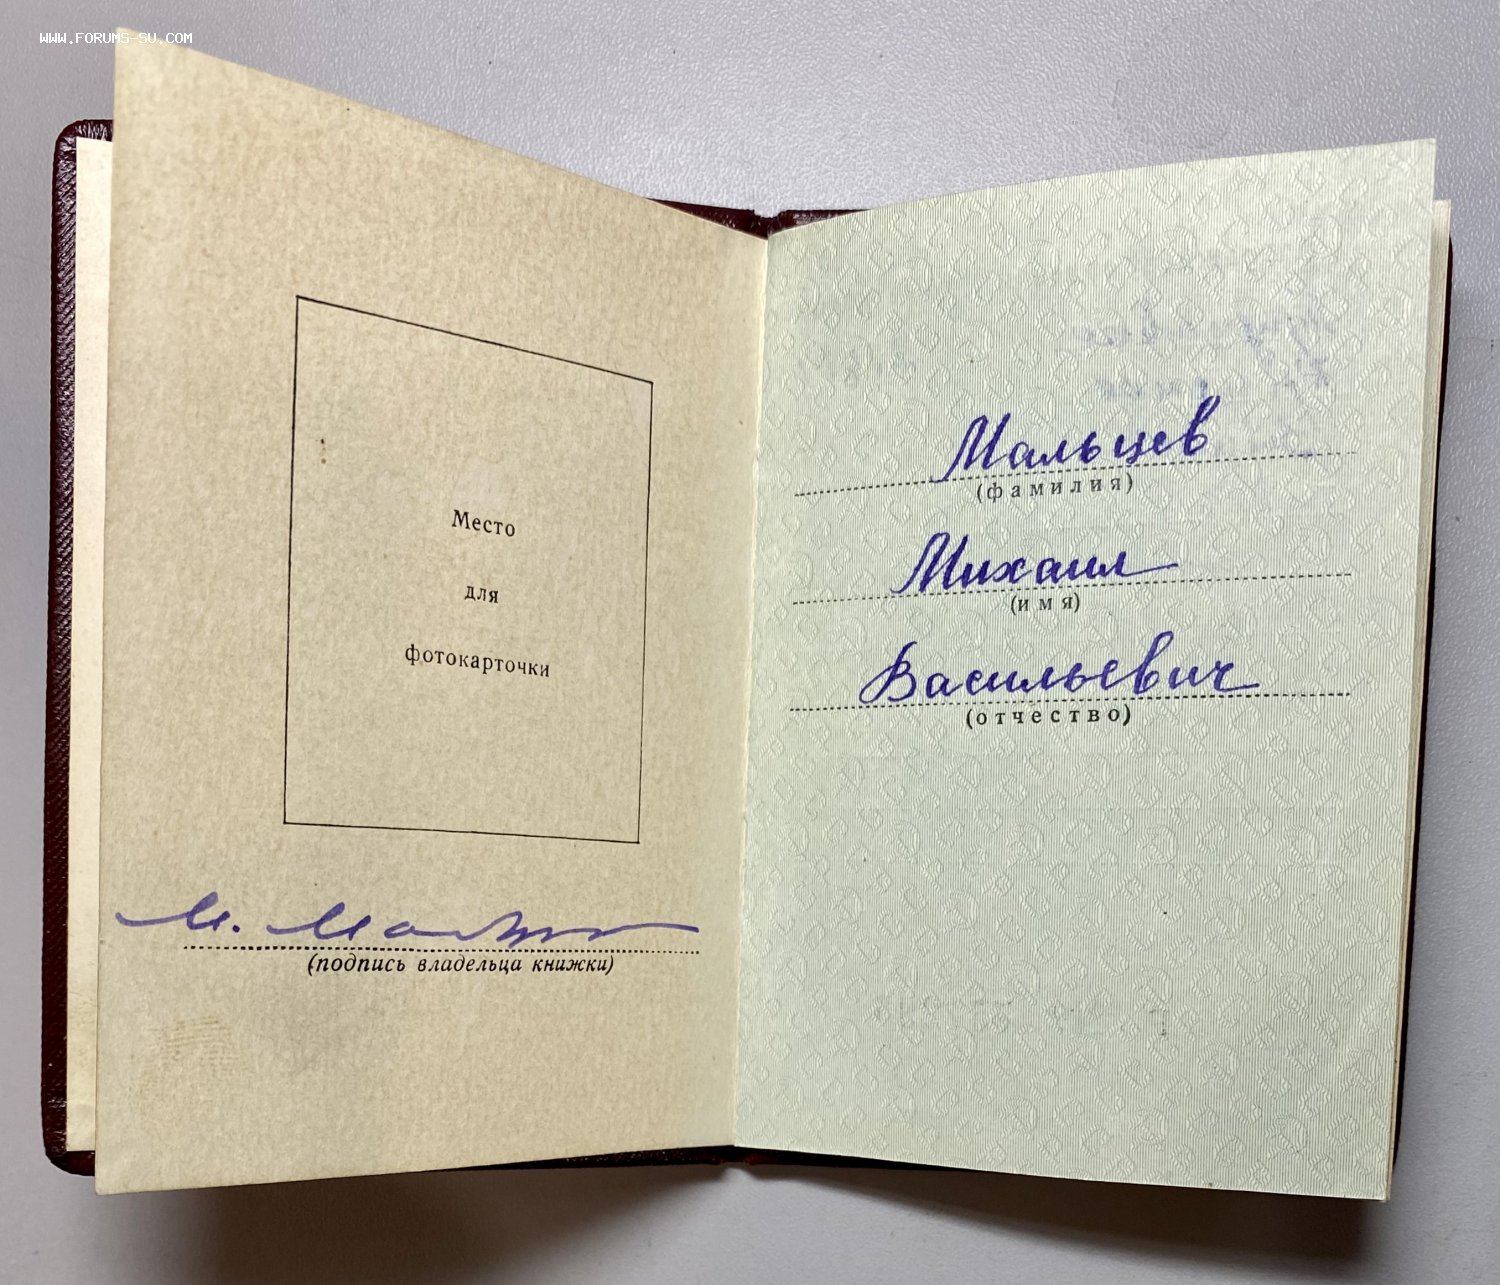 WWW.FORUMS-SU.COM
Место
для
фотокарточки
(подпись владельца книжки)
Мальцев
(фамилия)
Михаил
(имя)
Васильевич
(отчество)